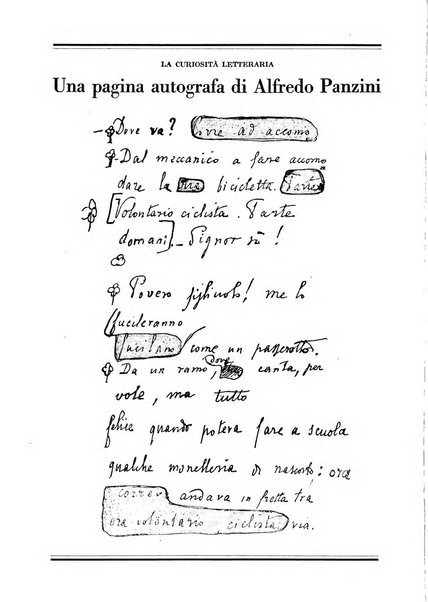 LA CURIOSITÀ LETTERARIA
Una pagina autografa di Alfredo Panzini
— Dove va? Corre ad accomo
Dal meccanico a fare accomo
dare la sua bicicletta. Parte
[Volontario ciclista. Parte
domani]. — Signor sì!
Povero figliuolo! me lo
fucileranno
fucilano come un passerotto.
Dove
Da un ramo, canta, per
vole, ma tutto
felice quando poteva fare a scuola
qualche monelleria di nascosto: ora
correv andava in fretta tra
ora volontario ciclista via.